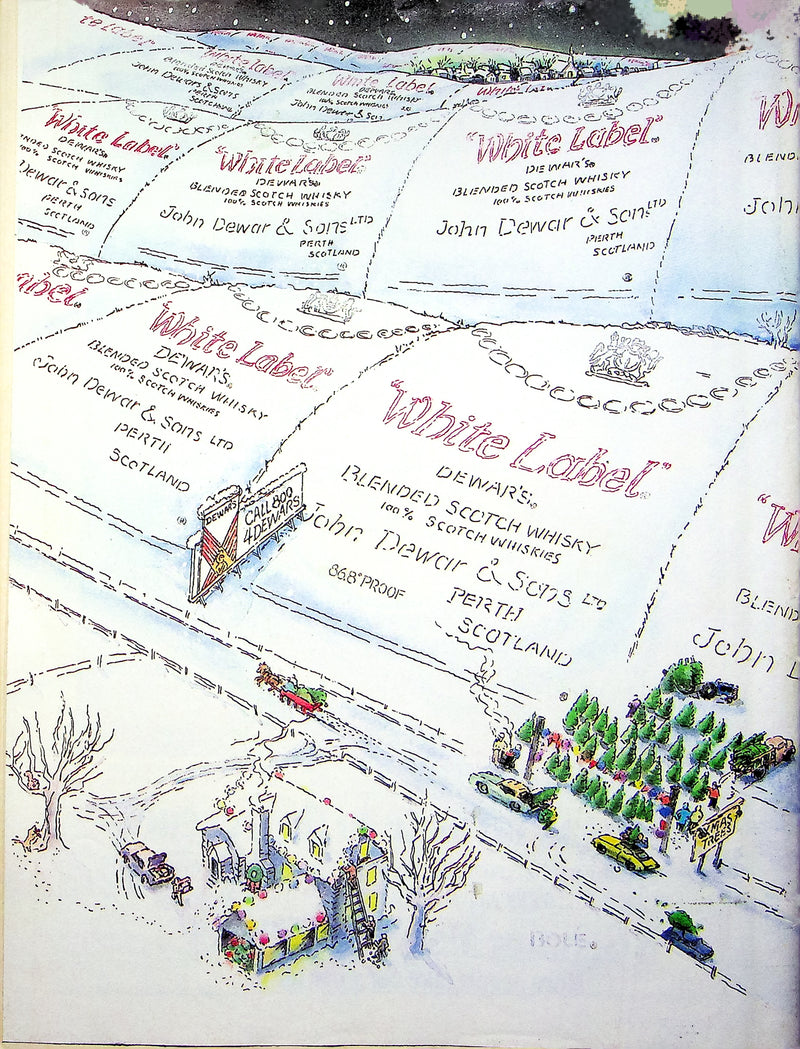 "White Label"
White Label
BLENDED SCOTCH WHISKY
100% SCOTCH WHISKIES
John Dewar & Sons
PERTH
SCOTLAND
White Label
DEWAR'S
BLENDED SCOTCH WHISKY
100% SCOTCH WHISKIES
John Dewar & Sons
White Label
"White Label"
DEWAR'S®
BLENDED SCOTCH WHISKY
100% SCOTCH WHISKIES
Dewar & Sons
PERTH
SCOTLAND
®
"White Label"
DEWAR'S®
BLENDED SCOTCH WHISKY
100% SCOTCH WHISKIES
John Dewar & Sons LTD
PERTH
SCOTLAND
®
"White Label"
DEWAR'S®
BLENDED SCOTCH WHISKY
100% SCOTCH WHISKIES
John Dewar & Sons LTD
PERTH
SCOTLAND
®
"Wh
BLEND
John
"White Label"
DEWAR'S®
BLENDED SCOTCH WHISKY
100% SCOTCH WHISKIES
John Dewar & Sons LTD
PERTH
SCOTLAND
®
"White Label"®
DEWAR'S®
BLENDED SCOTCH WHISKY
100% SCOTCH WHISKIES
John Dewar & Sons LTD
86.8° PROOF
PERTH
SCOTLAND
®
DEWARS
CALL 800
4DEWARS
"W
BLEND
John D
XMAS
TREES